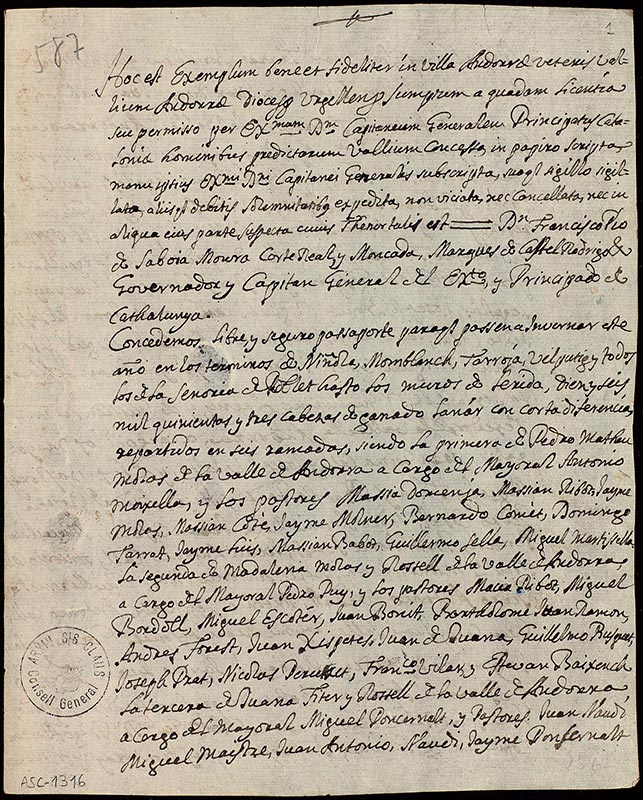 1
587
Hoc est Exemplum bene et fideliter in villa Andorræ veteris val-
lium Andorræ Diocesis Urgellensis sumptum a quadam Licentia
seu permisso per Exmum Dm Capitaneum Generalem Principatus Cata-
loniæ hominibus predictarum vallium Concessa, in papiro scripta
manu ipsius Exmi Dni Capitanei Generalis subscripta, suoqs sigillo sigil-
lata, aliisqs debitis solemnitatibqs expedita, non viciata, nec Cancellata, nec in
aliqua eius parte suspecta cuius Thenor talis est Dn Francisco Pio
de Saboia Moura Corte Real y Moncada, Marques de Castel Rodrigo
Governador y Capitan General del Exto, y Principado de
Cathalunya.
Concedemos libre y seguro passaporte paraqs passen a Invernar este
año en los terminos de Momblanch, y todos
los de la Señoria de hasta los muros de Lerida, Diez y seis
mil quinientos y tres cabezas de ganado lanár con corta diferencia,
repartidos en seis ramadas, siendo la primera de Pedro Matheu
Molas de la valle de Andorra a Cargo del Mayoral Antonio
Moixella, y los pastores Massia Massian Ribot, Jayme
Molas, Massian Jayme Molner, Bernardo Comet, Domingo
Tarrat, Jayme Massian Babot, Guillermo Sella, Miguel
La segunda de Madalena Molas y Rossell de la valle de Andorra
a Cargo del Mayoral Pedro Puy, y los pastores Macia Ribot, Miguel
Bordoll, Miguel Escoter, Juan Bonit, Bartholome Juan Ramon,
Andres Forest, Juan Juan de Juana, Guillelmo Busquet,
Joseph Prat, Nicolas Franco Vilar, y Estevan Baixench
La tercera de Juana Fiter y Rossell de la valle de Andorra
a Cargo del Mayoral Miguel Poncernalt, y Pastores Juan Naudi
Miguel Maistre, Juan Antonio, Naudi, Jayme Ponsernalt
ARXIU SIS CLAUS
Consell General
ASC-1316